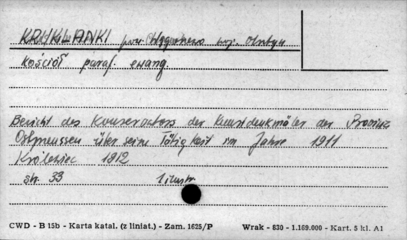 KRUKLANKI pow. Węgorzewo woj. Olsztyn
Kościół paraf. ewang.
Bericht des Konservators der Kunstdenkmäler der Provinz
Ostpreussen über seine Tätigkeit im Jahre 1911
Królewiec 1912
str. 33 1 ilustr.
CWD - B 15b - Karta katal. (z liniat.) - Zam. 1625/P Wrak - 830 - 1.169.000 - Kart. 5 kl. A1